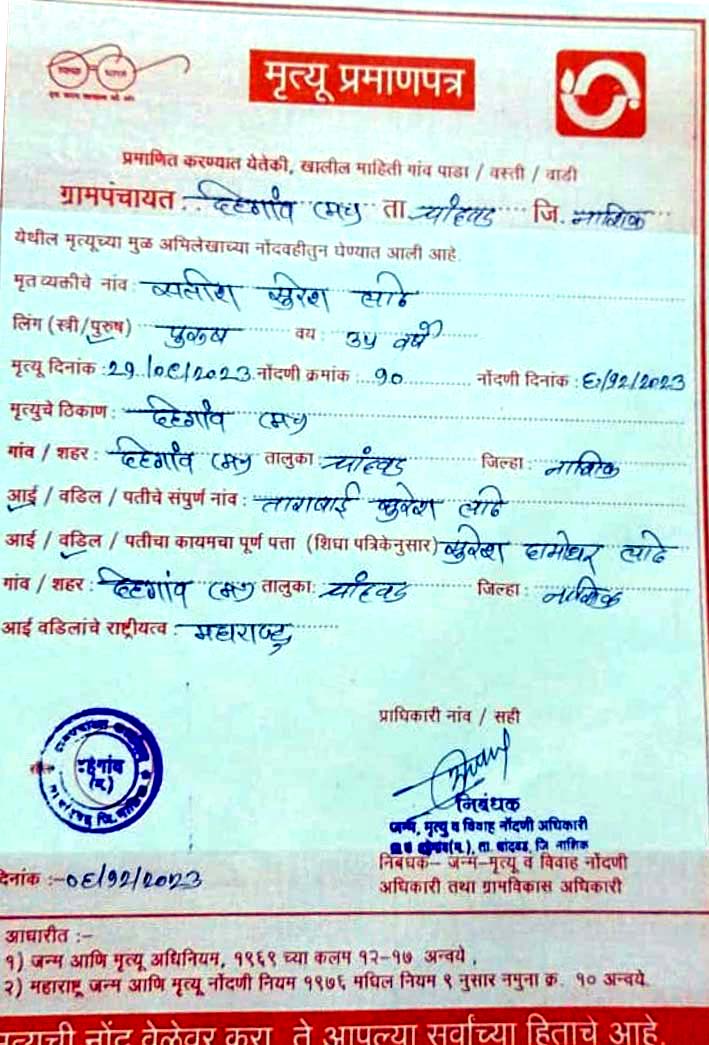 स्वच्छ भारत
एक कदम स्वच्छता की ओर
मृत्यू प्रमाणपत्र
प्रमाणित करण्यात येतेकी, खालील माहिती गांव पाडा / वस्ती / वाडी
ग्रामपंचायत : दहिगांव (म) ता. चांदवड जि. नाशिक
येथील मृत्यूच्या मुळ अभिलेखाच्या नोंदवहीतुन घेण्यात आली आहे.
मृत व्यक्तीचे नांव : सतीश सुरेश लोढे
लिंग (स्त्री/पुरुष) पुरुष वय : ३५ वर्षे
मृत्यू दिनांक : २९/०८/२०२३ नोंदणी क्रमांक : १० नोंदणी दिनांक : ६/१२/२०२३
मृत्युचे ठिकाण : दहिगांव (म)
गांव / शहर : दहिगांव (म) तालुका : चांदवड जिल्हा : नाशिक
आई / वडिल / पतीचे संपुर्ण नांव : ताराबाई सुरेश लोढे
आई / वडिल / पतीचा कायमचा पूर्ण पत्ता (शिधा पत्रिकेनुसार) सुरेश दामोधर लोढे
गांव / शहर : दहिगांव (म) तालुका : चांदवड जिल्हा : नाशिक
आई वडिलांचे राष्ट्रीयत्व : महाराष्ट्र
प्राधिकारी नांव / सही
निबंधक
जन्म, मृत्यु व विवाह नोंदणी अधिकारी
ता. चांदवड, जि नाशिक
निबंधक– जन्म–मृत्यू व विवाह नोंदणी
अधिकारी तथा ग्रामविकास अधिकारी
दिनांक :– ०६/१२/२०२३
आधारीत :–
१) जन्म आणि मृत्यू अधिनियम, १९६९ च्या कलम १२–१७ अन्वये ,
२) महाराष्ट्र जन्म आणि मृत्यू नोंदणी नियम १९७६ मधिल नियम ९ नुसार नमुना क्र. १० अन्वये.
मृत्यूची नोंद वेळेवर करा, ते आपल्या सर्वांच्या हिताचे आहे.